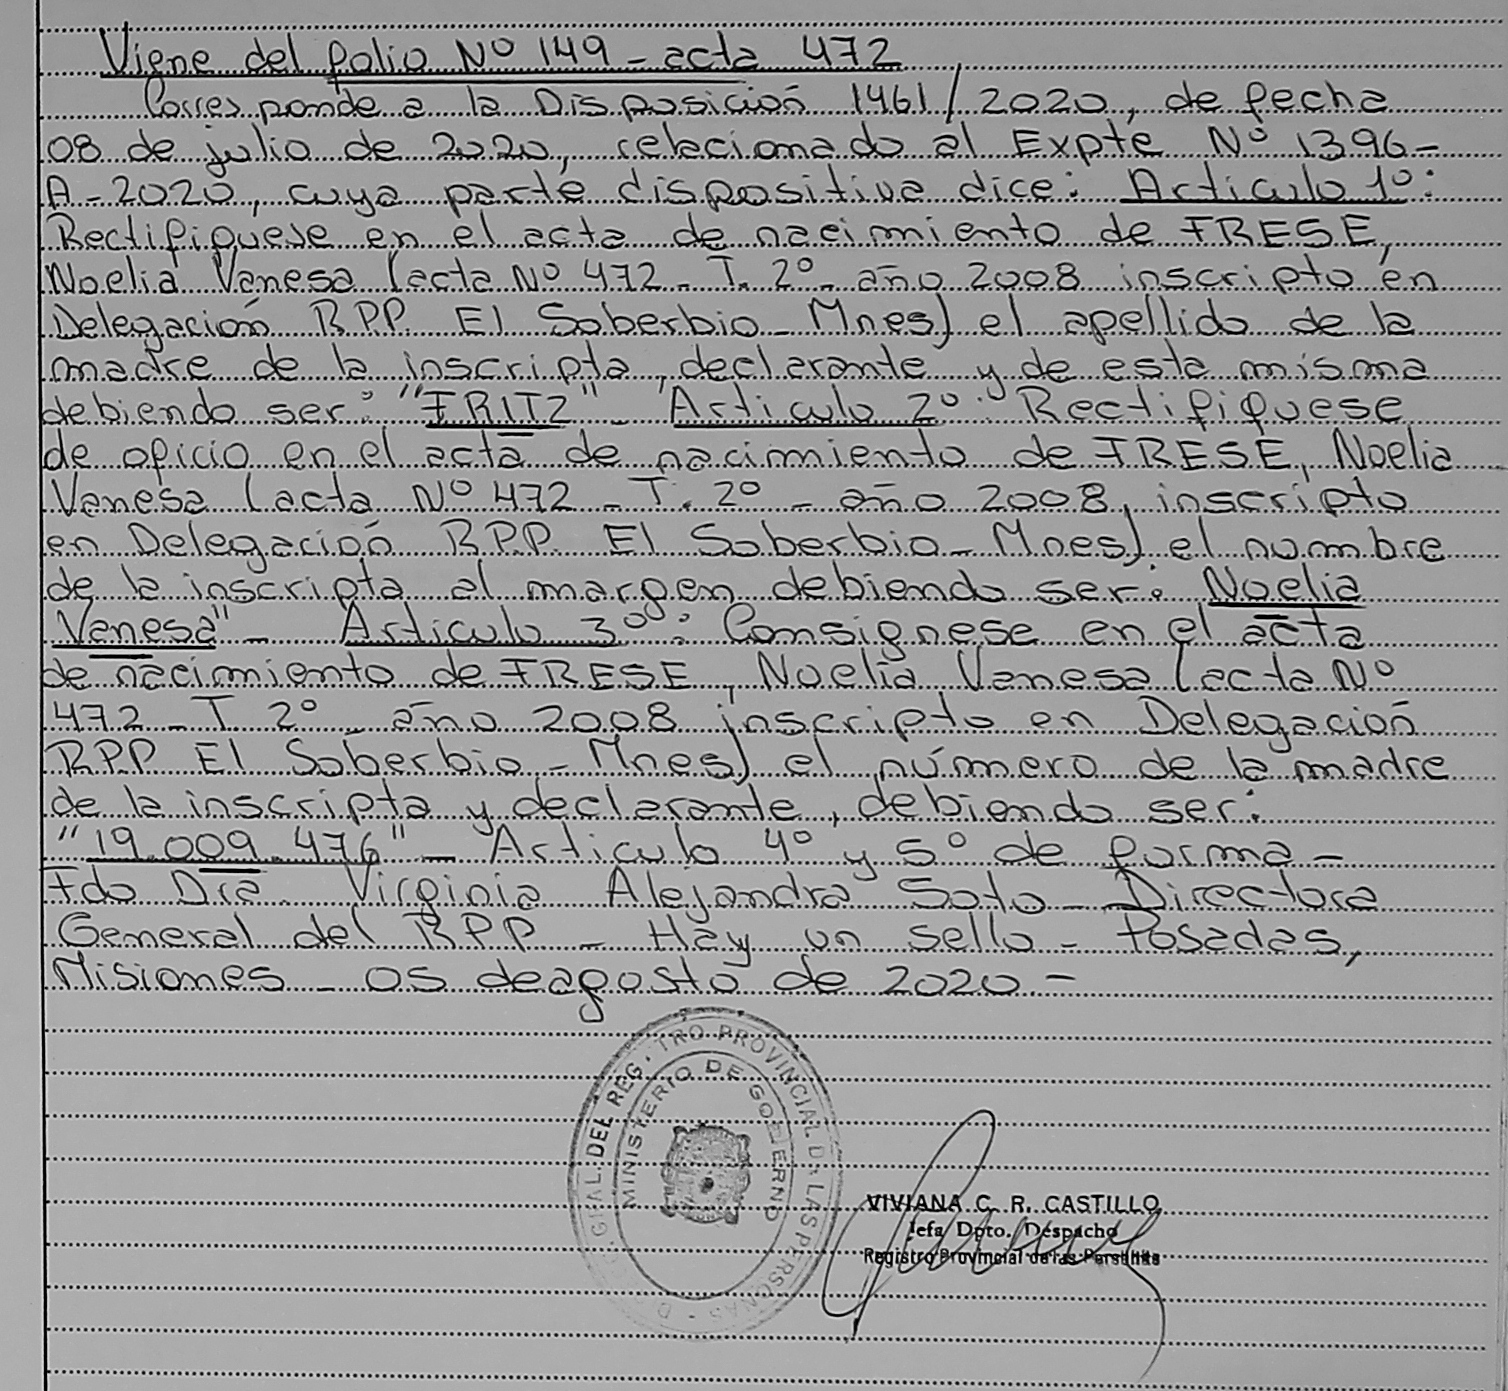 Viene del folio Nº 149 - acta 472
Corresponde a la Disposición 1461/2020, de fecha
08 de julio de 2020, relacionado al Expte Nº 1396-
A-2020, cuya parte dispositiva dice: Articulo 1º:
Rectifiquese en el acta de nacimiento de FRESE,
Noelia Vanesa (acta Nº 472 - T. 2º - año 2008 inscripto en
Delegación RPP. El Soberbio - Mnes) el apellido de la
madre de la inscripta, declarante y de esta misma
debiendo ser: "FRITZ" - Articulo 2º: Rectifiquese
de oficio en el acta de nacimiento de FRESE, Noelia
Vanesa (acta Nº 472 - T. 2º - año 2008, inscripto
en Delegación R.P.P. El Soberbio - Mnes) el nombre
de la inscripta al margen debiendo ser: Noelia
Vanesa" - Articulo 3º: Consignese en el acta
de nacimiento de FRESE, Noelia Vanesa (acta Nº
472 - T. 2º - año 2008 inscripto en Delegación
R.P.P El Soberbio - Mnes) el número de la madre
de la inscripta y declarante, debiendo ser:
"19.009.476" - Articulo 4º y 5º de forma -
Fdo Dra. Virginia Alejandra Soto - Directora
General del RPP - Hay un sello - Posadas,
Misiones - 05 de agosto de 2020 -
GRAL. DEL REG. TRO PROVINCIAL DE LAS PERSONAS
MINISTERIO DE GOBIERNO
VIVIANA C. R. CASTILLO
Jefa Dpto. Despacho
Registro Provincial de las Personas